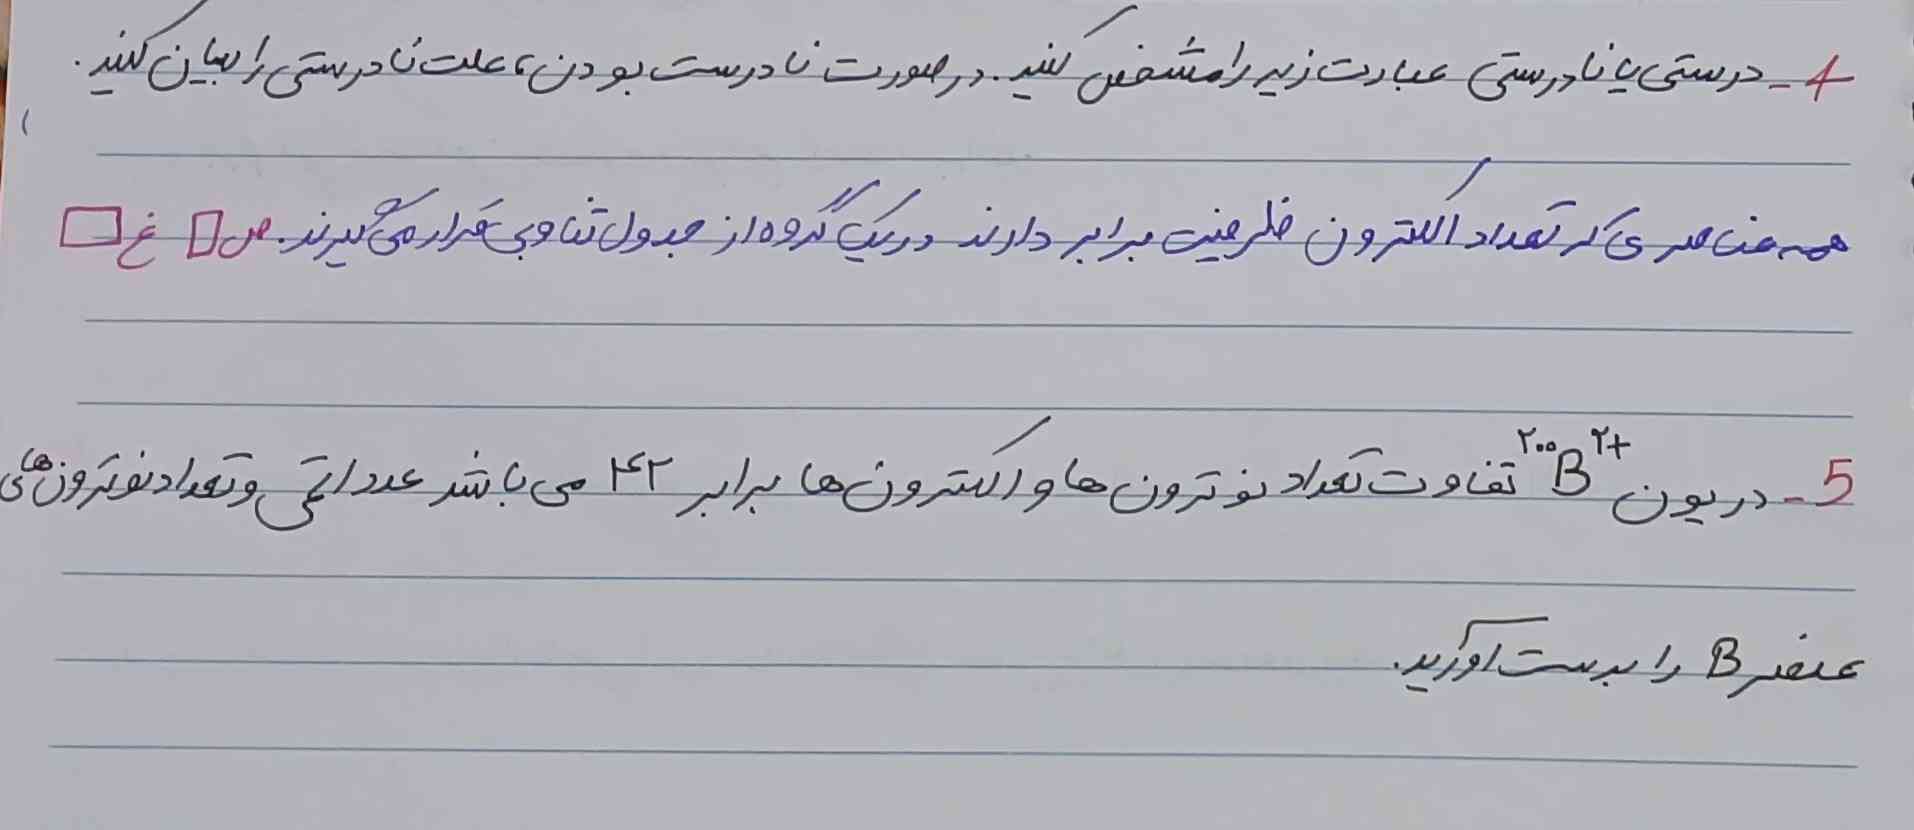 4- درستی یا نادرستی عبارت زیر را مشخص کنید. در صورت نادرست بودن، علت نادرستی را بیان کنید.
همه عناصری که تعداد الکترون ظرفیت برابر دارند در یک گروه از جدول تناوبی قرار می گیرند. ص□ غ□
5- در یون ²⁺B²⁰⁰ تفاوت تعداد نوترون ها و الکترون ها برابر ۴۲ می باشد عدد اتمی و تعداد نوترون های
عنصر B را بدست آورید.